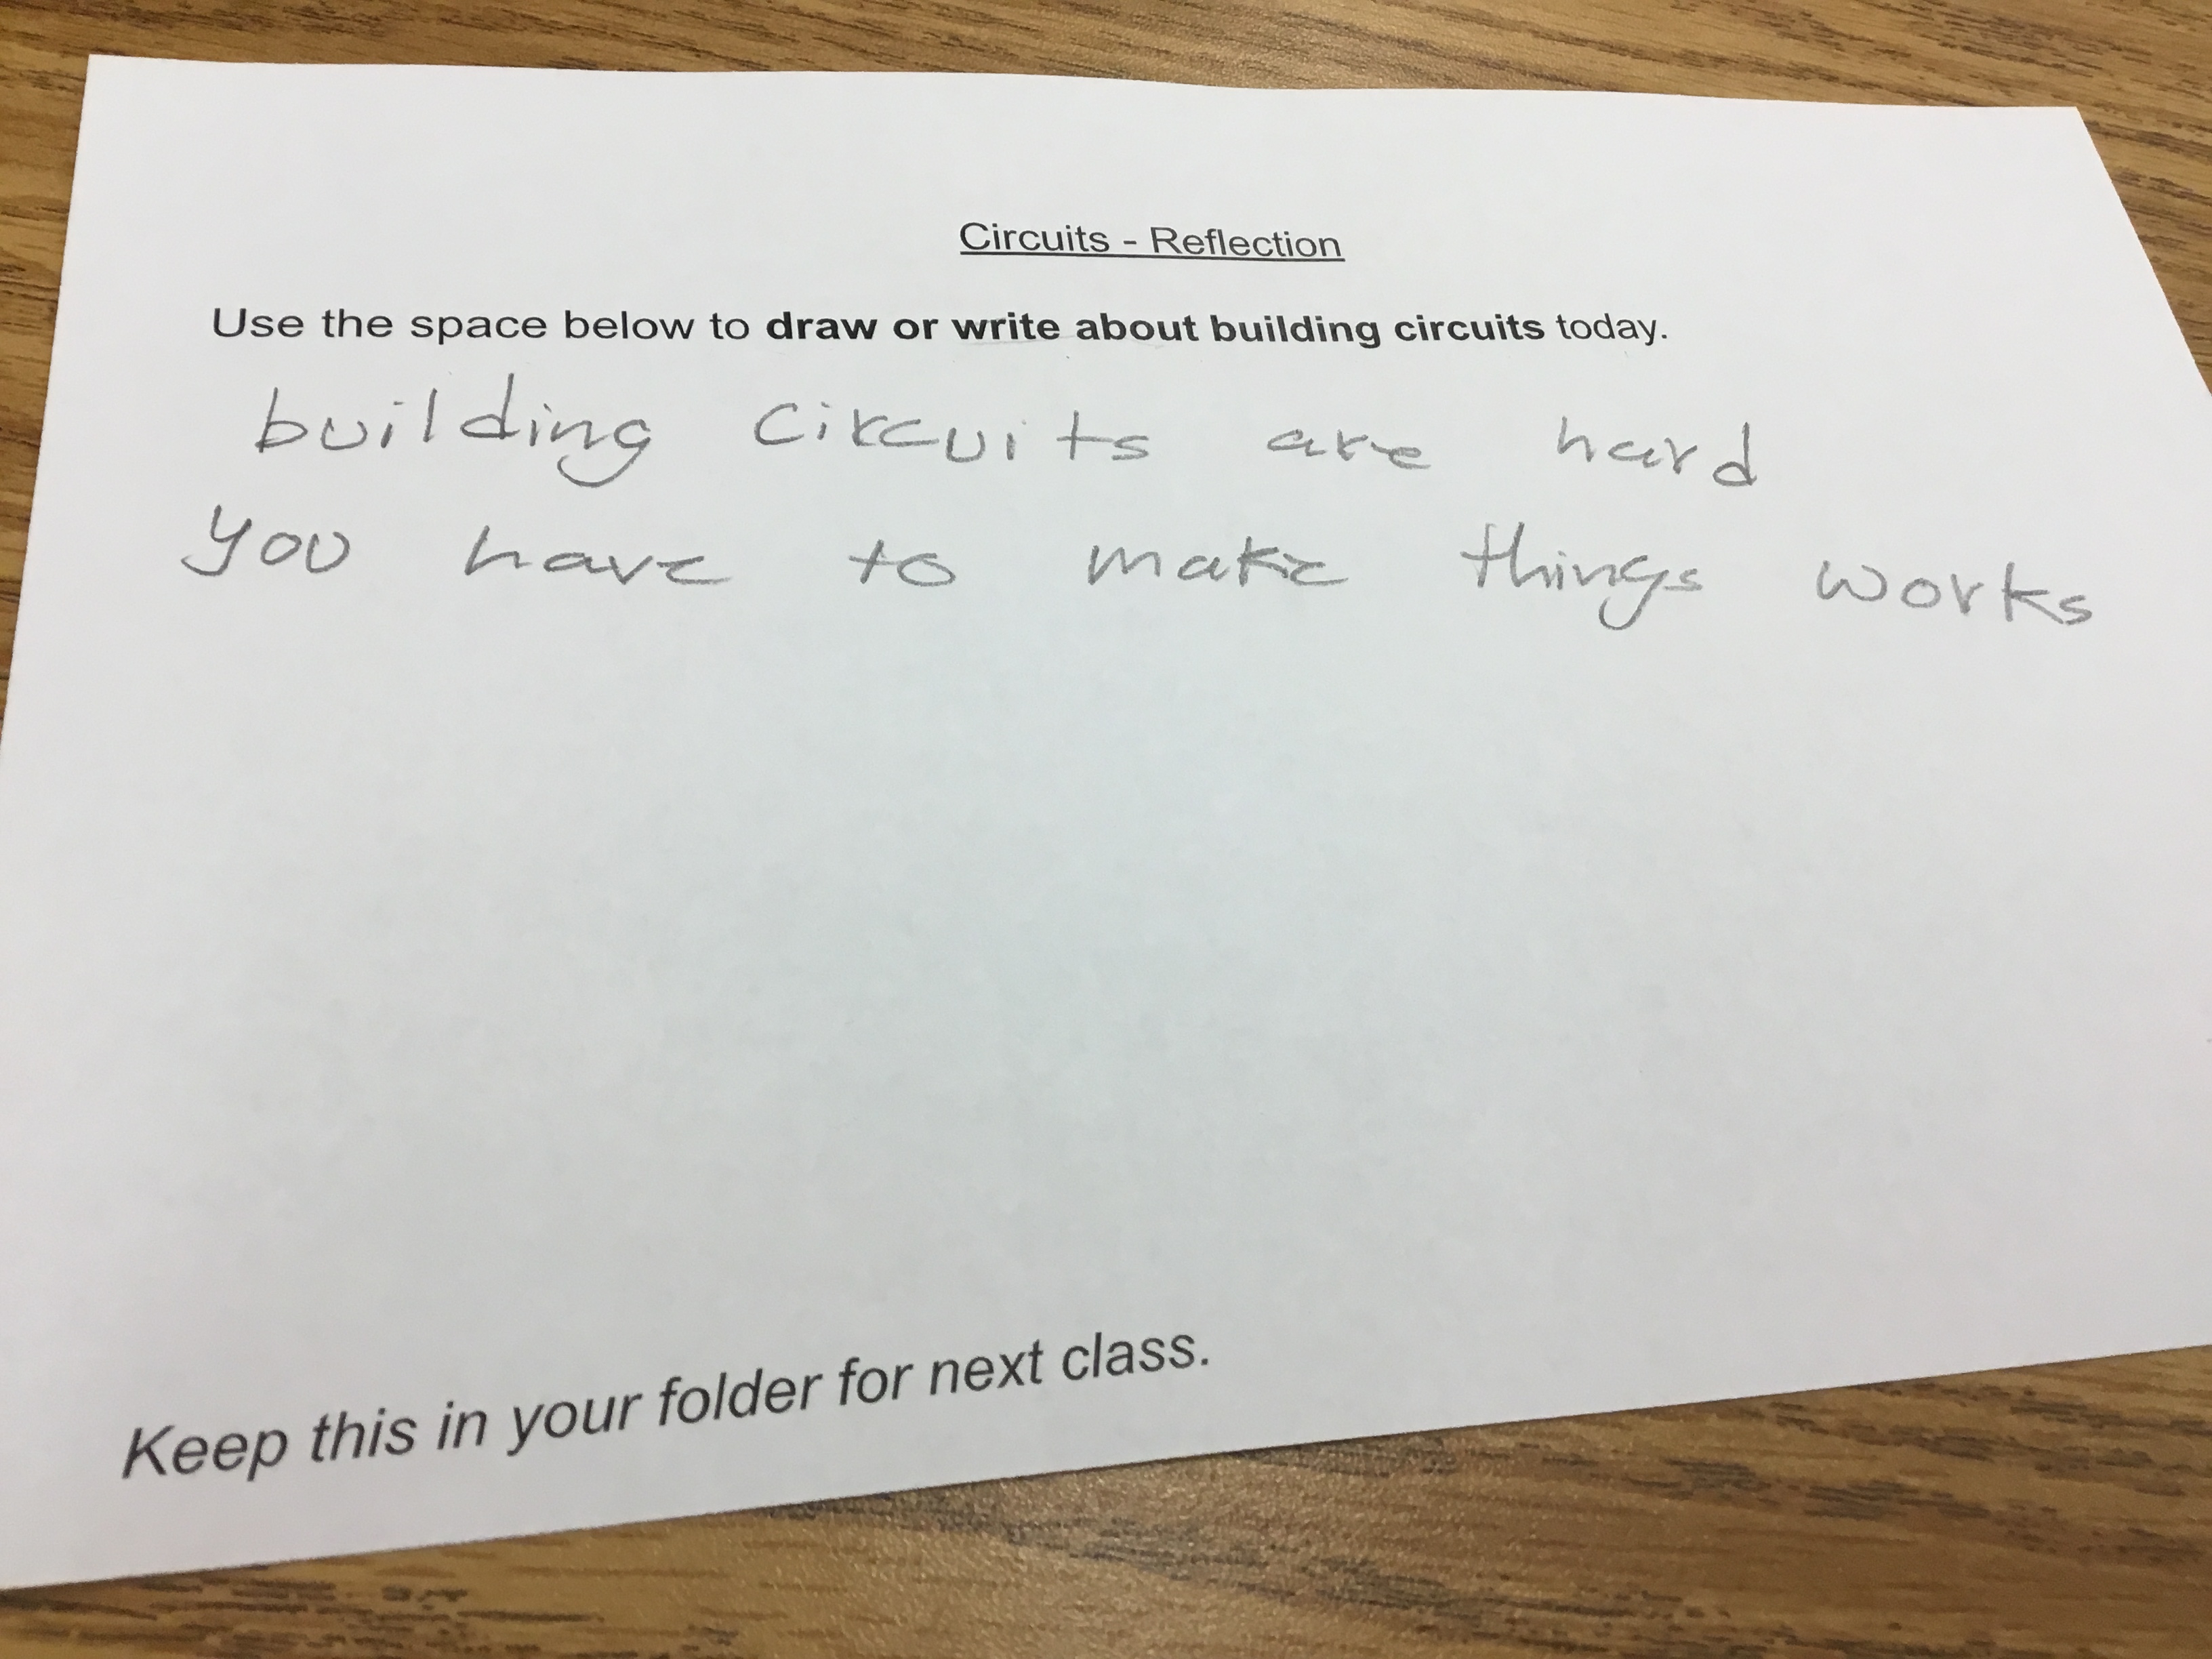 Circuits - Reflection
Use the space below to draw or write about building circuits today.
building circuits are hard
you have to make things works
Keep this in your folder for next class.